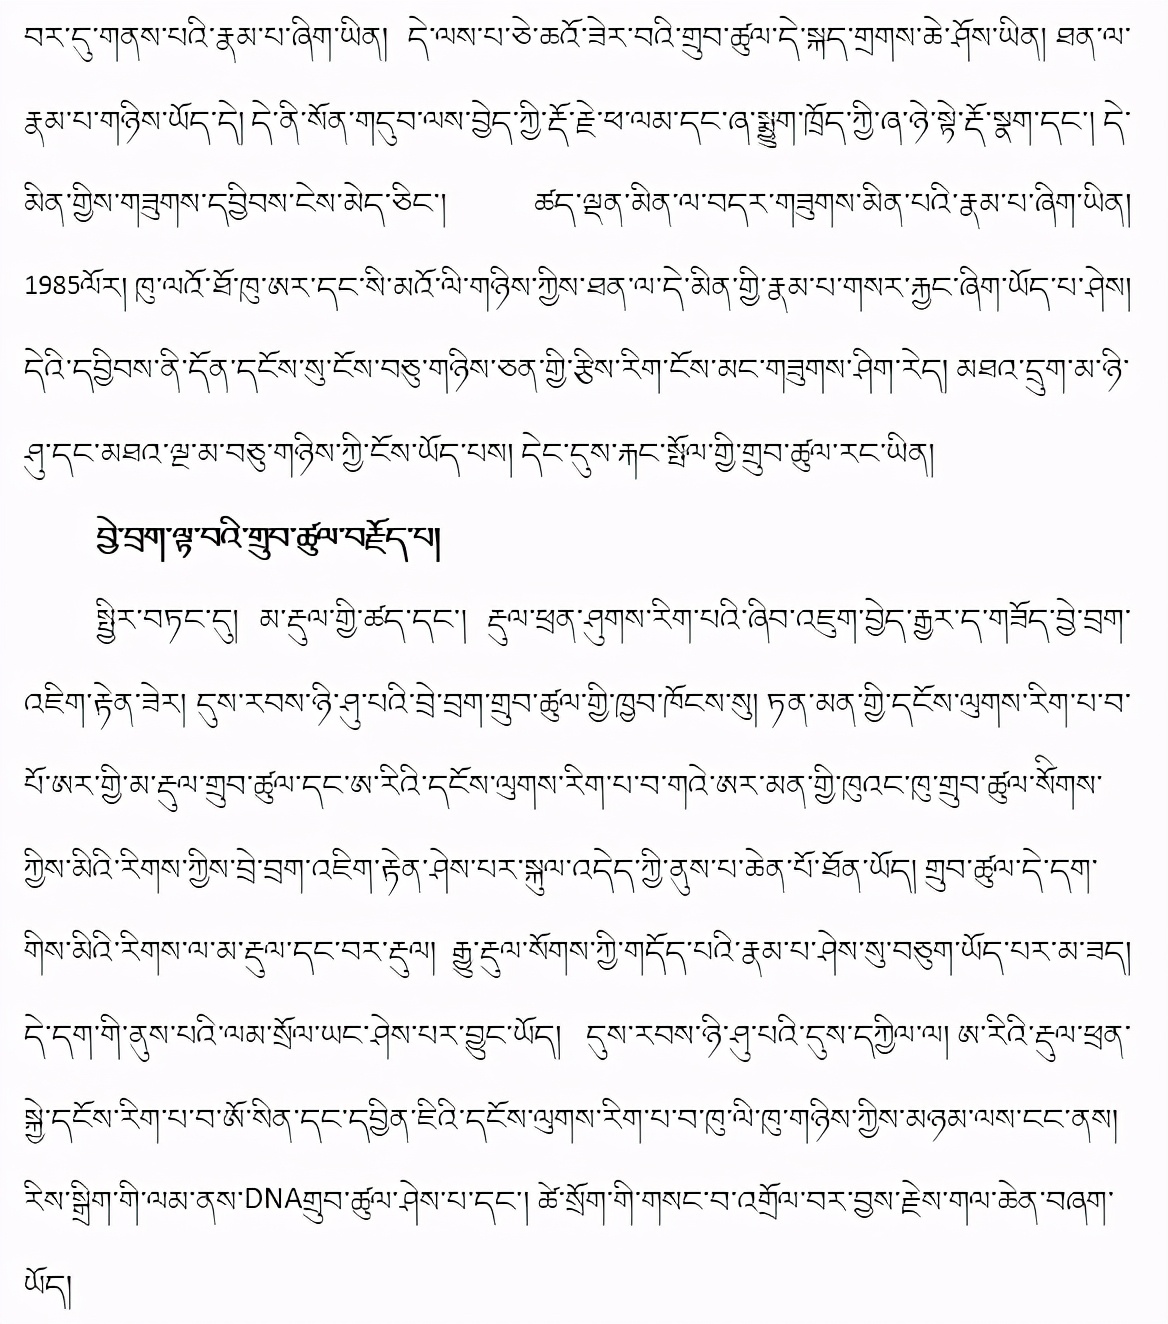 བར་དུ་གནས་པའི་རྣམ་པ་ཞིག་ཡིན། དེ་ལས་པ་ཅེ་ཆའོ་ཟེར་བའི་གྲུབ་ཚུལ་དེ་སྐད་གྲགས་ཆེ་ཤོས་ཡིན། ཐན་ལ་
རྣམ་པ་གཉིས་ཡོད་དེ། དེ་ནི་སོན་གདུབ་ལས་བྱེད་ཀྱི་རྡོ་རྗེ་ཕ་ལམ་དང་ཞ་སྨྱུག་ཁྲོད་ཀྱི་ཞ་ཉེ་སྟེ་རྡོ་སྣག་དང་། དེ་
མིན་གྱིས་གཟུགས་དབྱིབས་ངེས་མེད་ཅིང་། ཚད་ལྡན་མིན་ལ་བདར་གཟུགས་མིན་པའི་རྣམ་པ་ཞིག་ཡིན།
1985ལོར། ཁུ་ལའོ་ཐོ་ཁུ་ཨར་དང་སི་མའོ་ལི་གཉིས་ཀྱིས་ཐན་ལ་དེ་མིན་གྱི་རྣམ་པ་གསར་རྐྱང་ཞིག་ཡོད་པ་ཤེས།
དེའི་དབྱིབས་ནི་དོན་དངོས་སུ་ངོས་བཅུ་གཉིས་ཅན་གྱི་རྩིས་རིག་ངོས་མང་གཟུགས་ཤིག་རེད། མཐའ་དྲུག་མ་ཉི་
ཤུ་དང་མཐའ་ལྔ་མ་བཅུ་གཉིས་ཀྱི་ངོས་ཡོད་པས། དེང་དུས་རྐང་སྤོལ་གྱི་གྲུབ་ཚུལ་རང་ཡིན།
བྱེ་བྲག་ལྟ་བའི་གྲུབ་ཚུལ་བརྗོད་པ།
སྤྱིར་བཏང་དུ། མ་རྡུལ་གྱི་ཚད་དང་། རྡུལ་ཕྲན་ཤུགས་རིག་པའི་ཞིབ་འཇུག་བྱེད་རྒྱར་ད་གཟོད་བྱེ་བྲག་
འཇིག་རྟེན་ཟེར། དུས་རབས་ཉི་ཤུ་པའི་བྲེ་བྲག་གྲུབ་ཚུལ་གྱི་ཁྱབ་ཁོངས་སུ། ཏན་མན་གྱི་དངོས་ལུགས་རིག་པ་བ་
པོ་ཨར་གྱི་མ་རྡུལ་གྲུབ་ཚུལ་དང་ཨ་རིའི་དངོས་ལུགས་རིག་པ་བ་གའེ་ཨར་མན་གྱི་ཁུའང་ཁུ་གྲུབ་ཚུལ་སོགས་
ཀྱིས་མིའི་རིགས་ཀྱིས་བྲེ་བྲག་འཇིག་རྟེན་ཤེས་པར་སྐུལ་འདེད་ཀྱི་ནུས་པ་ཆེན་པོ་ཐོན་ཡོད། གྲུབ་ཚུལ་དེ་དག་
གིས་མིའི་རིགས་ལ་མ་རྡུལ་དང་བར་རྡུལ། རྒྱུ་རྡུལ་སོགས་ཀྱི་གདོད་པའི་རྣམ་པ་ཤེས་སུ་བཅུག་ཡོད་པར་མ་ཟད།
དེ་དག་གི་ནུས་པའི་ལམ་སྲོལ་ཡང་ཤེས་པར་བྱུང་ཡོད། དུས་རབས་ཉི་ཤུ་པའི་དུས་དཀྱིལ་ལ། ཨ་རིའི་རྡུལ་ཕྲན་
སྐྱེ་དངོས་རིག་པ་བ་ཨོ་སིན་དང་དབྱིན་ཇིའི་དངོས་ལུགས་རིག་པ་བ་ཁུ་ལི་ཁུ་གཉིས་ཀྱིས་མཉམ་ལས་ངང་ནས།
རིས་སྒྲིག་གི་ལམ་ནས་DNAགྲུབ་ཚུལ་ཤེས་པ་དང་། ཚེ་སྲོག་གི་གསང་བ་འགྲོལ་བར་བྱས་རྗེས་གལ་ཆེན་བཞག་
ཡོད།